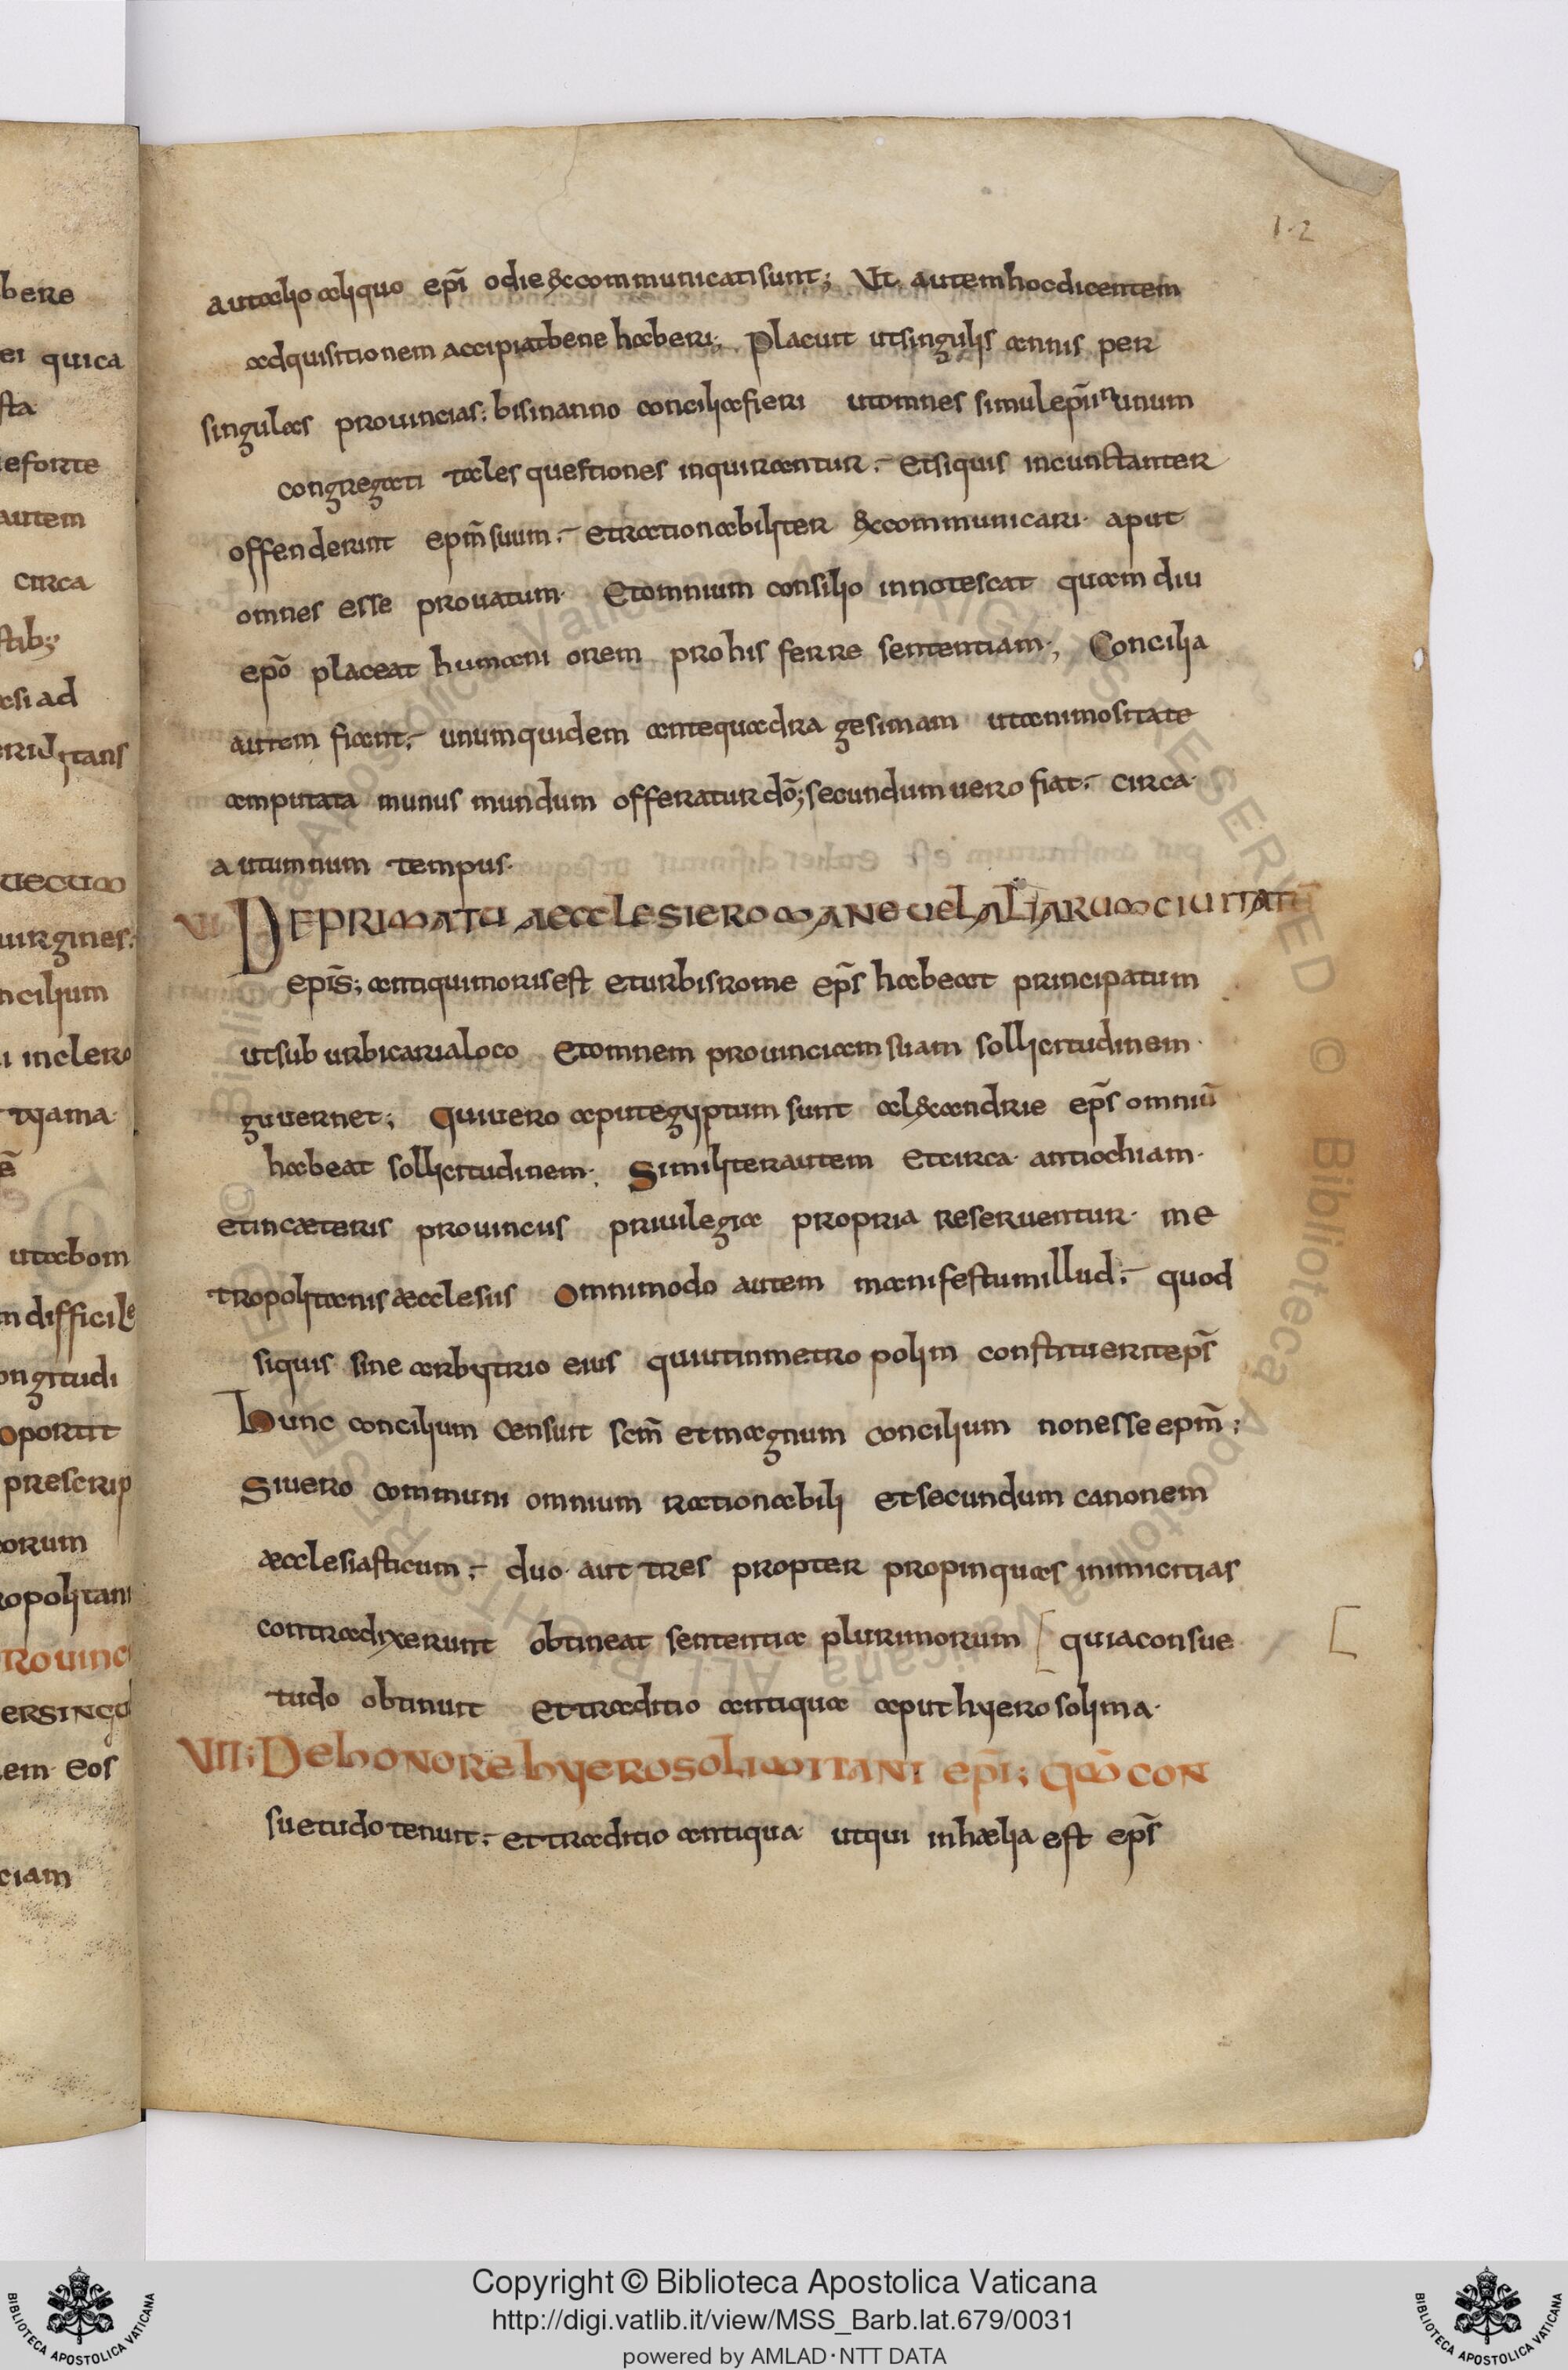 bere
ei quica
sta
eforte
autem
circa
stib;
si ad
eriditans
uirgines:
ncilium
i inclero
tyama
utabom
m difficile
ongitudi
oportit
prescrip
orum
opolitani
rouinc
ersingu
em eos
ciam
1.2
autalio aliquo epĩ odie &ccommunicatisunt; Vt autemhocdicentem
adquisitionem accipiatbene haberi; Placuit utsingulis annis per
singulas prouincias: bisinanno conciliafieri utomnes simulepĩinunum
congregati tales questiones inquirantur. Etsiquis incunstanter
offenderint epm̃suum. etrationabiliter &ccommunicari aput
omnes esse prouatum. Etomnium consilio innotescat quam diu
epõ placeat humani orem prohis ferre sententiam; Concilia
autem fiant. unumquidem antequadra gesimam utanimositate
amputata munus mundum offeraturdõ; secundumuero fiat. circa
autumnum tempus.
VI DEPRIMATU AECCLESIEROMANE UEL ALIARUM CIUITATŨ
epĩs; antiquimorisest eturbisrome ep̃s habeat principatum
utsub urbicarialoco Etomnem prouinciamsuam sollicitudinem
guuernet; Quiuero aputegyptum sunt al&candrie ep̃s omniũ
habeat sollicitudinem; Similiterautem Etcirca antiochiam.
etincæteris prouincus priuilegia propria reseruentur. me
tropolitanisæcclesiis Omnimodo autem manifestumillud. quod
siquis sine arbytrio eius quiutinmetro polim constitueritep̃s
Hunc concilium censuit scm̃ etmagnum concilium nonesseepm̃;
Siuero communi omnium rationabili etsecundum canonem
æcclesiasticum. duo aut tres propter propinquas inimicitias
contradixerunt obtineat sententia plurimorum [ quiaconsue [
tudo obtinuit Ettraditio antiqua aputhyerosolima.
VII; DeHONORe hyeROSOLIMITANI epĩ; qm̃ CON
suetudotenuit. ettraditio antiqua utqui inhælia est ep̃s
Copyright © Biblioteca Apostolica Vaticana
http://digi.vatlib.it/view/MSS_Barb.lat.679/0031
powered by AMLAD·NTT DATA
BIBLIOTECA APOSTOLICA VATICANA
BIBLIOTECA APOSTOLICA VATICANA